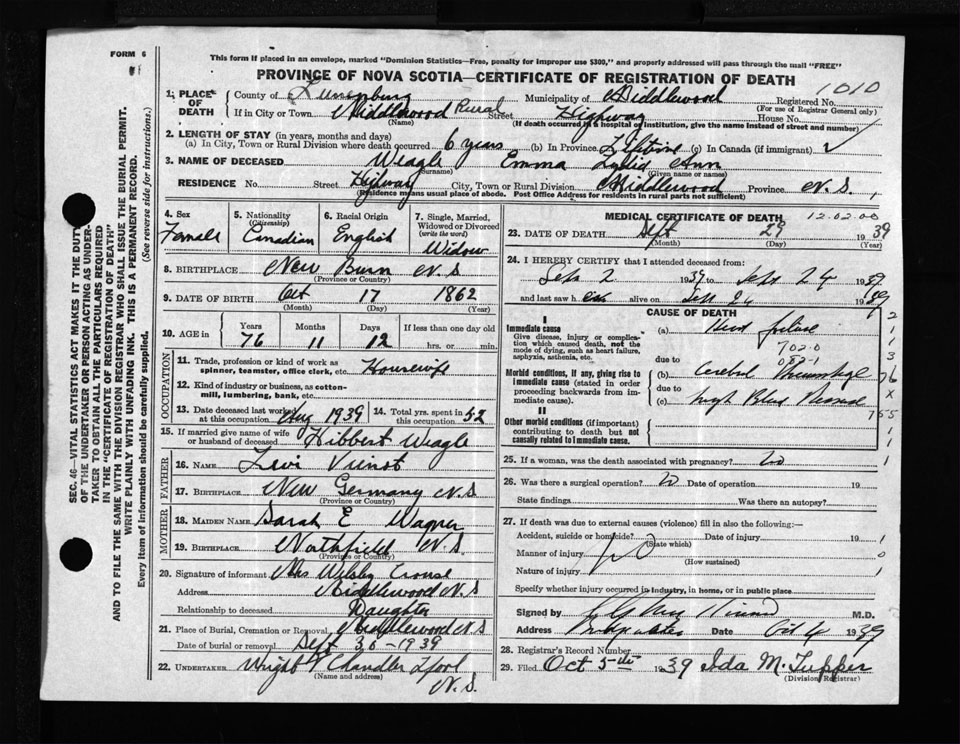 FORM 6
This form if placed in an envelope, marked "Dominion Statistics—Free, penalty for improper use $300," and properly addressed will pass through the mail "FREE"
PROVINCE OF NOVA SCOTIA—CERTIFICATE OF REGISTRATION OF DEATH
1010
SEC. 46—VITAL STATISTICS ACT MAKES IT THE DUTY
OF THE UNDERTAKER OR PERSON ACTING AS UNDER-
TAKER TO OBTAIN ALL THE PARTICULARS REQUIRED
IN THE "CERTIFICATE OF REGISTRATION OF DEATH"
AND TO FILE THE SAME WITH THE DIVISION REGISTRAR WHO SHALL ISSUE THE BURIAL PERMIT.
WRITE PLAINLY WITH UNFADING INK. THIS IS A PERMANENT RECORD.
Every item of information should be carefully supplied. (See reverse side for instructions.)
1. PLACE OF DEATH County of Lunenburg Municipality of Middlewood Registered No.
(For use of Registrar General only)
If in City or Town Middlewood Rural Street Highway House No.
(Name) (If death occurred in a hospital or institution, give the name instead of street and number)
2. LENGTH OF STAY (in years, months and days)
(a) In City, Town or Rural Division where death occurred 6 years (b) In Province Lifetime (c) In Canada (if immigrant) ✓
3. NAME OF DECEASED Weagle Emma Lydia Ann
(Surname) (Given name or names)
RESIDENCE No. Street Highway City, Town or Rural Division Middlewood Province N.S.
(Residence means usual place of abode. Post Office Address for residents in rural parts not sufficient)
4. Sex Female
5. Nationality (Citizenship) Canadian
6. Racial Origin English
7. Single, Married, Widowed or Divorced (write the word) Widow
8. BIRTHPLACE New Burn N S
(Province or Country)
9. DATE OF BIRTH Oct 17 1862
(Month) (Day) (Year)
10. AGE in Years 76 Months 11 Days 12 If less than one day old hrs. or min.
OCCUPATION
11. Trade, profession or kind of work as spinner, teamster, office clerk, etc. Housewife
12. Kind of industry or business, as cotton-mill, lumbering, bank, etc.
13. Date deceased last worked at this occupation Aug 1939 14. Total yrs. spent in this occupation 52
15. If married give name of wife or husband of deceased Hibbert Weagle
FATHER
16. NAME Levi Veinot
17. BIRTHPLACE New Germany N S
(Province or Country)
MOTHER
18. MAIDEN NAME Sarah E Wagner
19. BIRTHPLACE Northfield N.S.
(Province or Country)
20. Signature of informant Mrs Crouse
Address Middlewood N S
Relationship to deceased Daughter
21. Place of Burial, Cremation or Removal Middlewood N S
Date of burial or removal Sept 30 - 1939
22. UNDERTAKER Wright Chandler Lpool
(Name and address) N.S.
MEDICAL CERTIFICATE OF DEATH 12.02.00
23. DATE OF DEATH Sept 29 1939
(Month) (Day) (Year)
24. I HEREBY CERTIFY that I attended deceased from:
Sept 2 1939 to Sept 24 1939
and last saw her alive on Sept 24 1939
CAUSE OF DEATH
I
Immediate cause
Give disease, injury or complication which caused death, not the mode of dying, such as heart failure, asphyxia, asthenia, etc.
(a) Heart failure
due to
Morbid conditions, if any, giving rise to immediate cause (stated in order proceeding backwards from immediate cause).
(b) Cerebral
due to
(c) High Blood Pressure
II
Other morbid conditions (if important) contributing to death but not causally related to immediate cause.
25. If a woman, was the death associated with pregnancy? No
26. Was there a surgical operation? No Date of operation 19
State findings Was there an autopsy?
27. If death was due to external causes (violence) fill in also the following:—
Accident, suicide or homicide? Date of injury 19
(State which)
Manner of injury
(How sustained)
Nature of injury
Specify whether injury occurred in industry, in home, or in public place
Signed by M.D.
Address Date Oct 4 1939
28. Registrar's Record Number
29. Filed Oct 5th 1939 Ida M. Tupper
(Division Registrar)